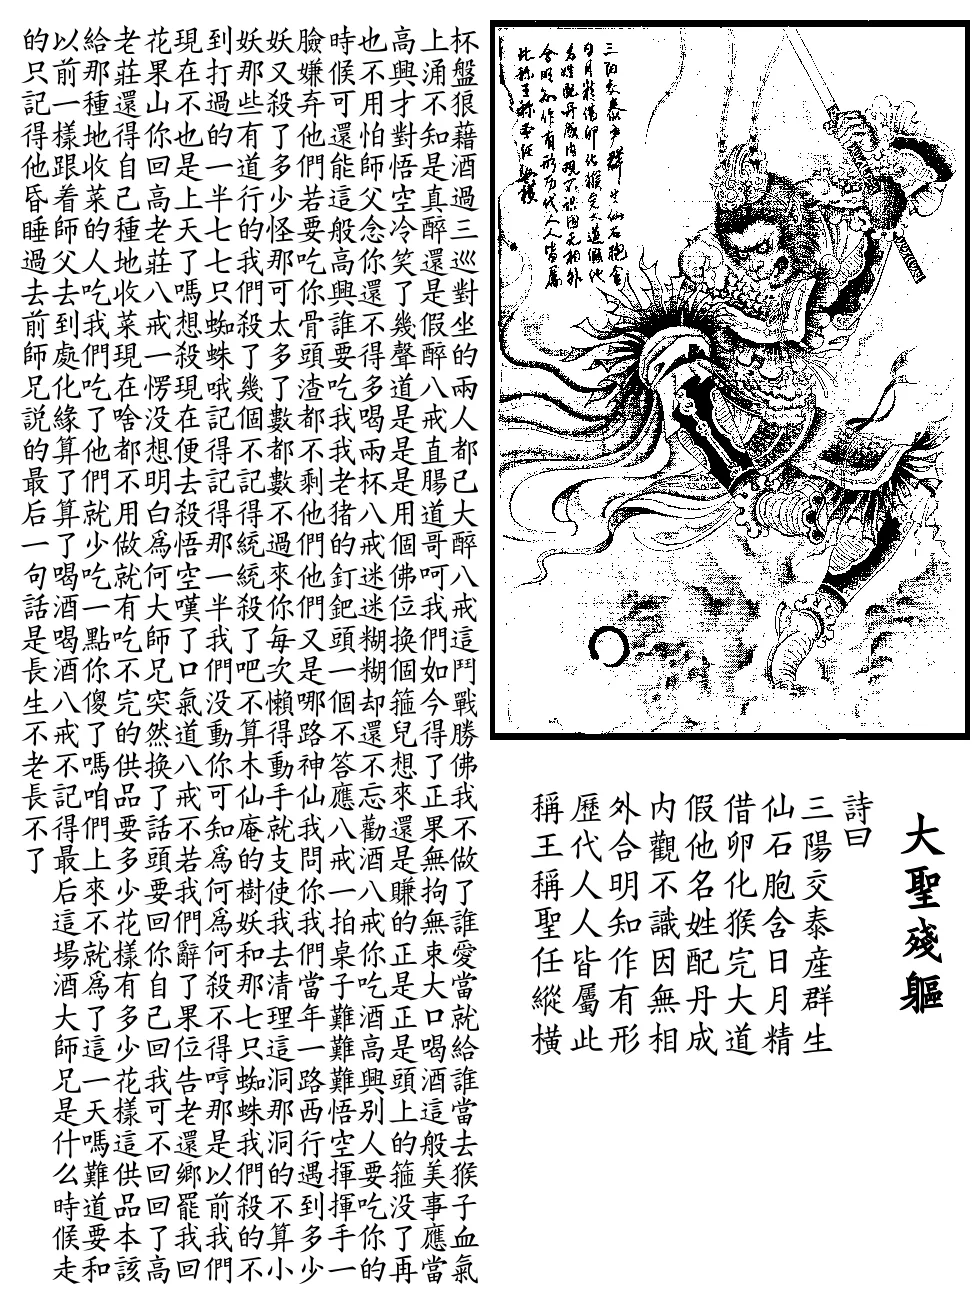 三阳交泰产群生仙石胞含
日月精借卵化猴完大道假他
名姓配丹成内观不识因无相外
合明知作有形历代人人皆属
此称王称圣任纵横
大聖殘軀
詩曰
三陽交泰産群生
仙石胞含日月精
借卵化猴完大道
假他名姓配丹成
内觀不識因無相
外合明知作有形
歷代人人皆屬此
稱王稱聖任縱橫
杯盤狼藉酒過三巡對坐的兩人都已大醉八戒這鬥戰勝佛我不做了誰愛當就給誰當去猴子血氣
上涌不知是真醉還是假醉八戒直腸道哥呵我們如今得了正果無拘無束大口喝酒這般美事應當
高興才對悟空冷笑了幾聲道是是是用個佛位換個箍兒想來還是賺的正是正是頭上的箍没了再
也不用怕師父念你還不得多喝兩杯八戒迷迷糊糊却還不忘勸酒八戒你吃酒高興別人要吃你的
時候可還能這般高興誰要吃我我老猪的釘鈀頭一個不答應八戒一拍桌子難難難悟空揮揮手一
臉嫌弃他們若要吃你骨頭渣都不剩他們他們又是哪路神仙我問你我們當年一路西行遇到多少
妖又殺了多少怪那可太多了數都數不過來你每次懶得動手就支使我去清理這洞那洞的不算小
妖那些有道行的我們殺了幾個不記得統統殺了吧不算木仙庵的樹妖和那七只蜘蛛我們殺的不
到打過的一半七七只蜘蛛哦記得記得那一半我們没動你可知爲何爲何殺不得哼那是以前我們
現在不也是上天了嗎想殺現在便去殺悟空嘆了口氣道八戒不若我們辭了果位告老還鄉罷我回
花果山你回高老莊八戒一愣没想明白爲何大師兄突然換了話頭要回你自己回我可不回回了高
老莊還得自己種地收菜現在啥都不用做就有吃不完的供品要多少花樣有多少花樣這供品本該
給那種地收菜的人吃我們吃了他們就少吃一點你傻了嗎咱們上來不就爲了這一天嗎難道要和
以前一樣跟着師父去到處化緣算了算了喝酒喝酒八戒不記得最后這場酒大師兄是什么時候走
的只記得他昏睡過去前師兄説的最后一句話是長生不老長不了